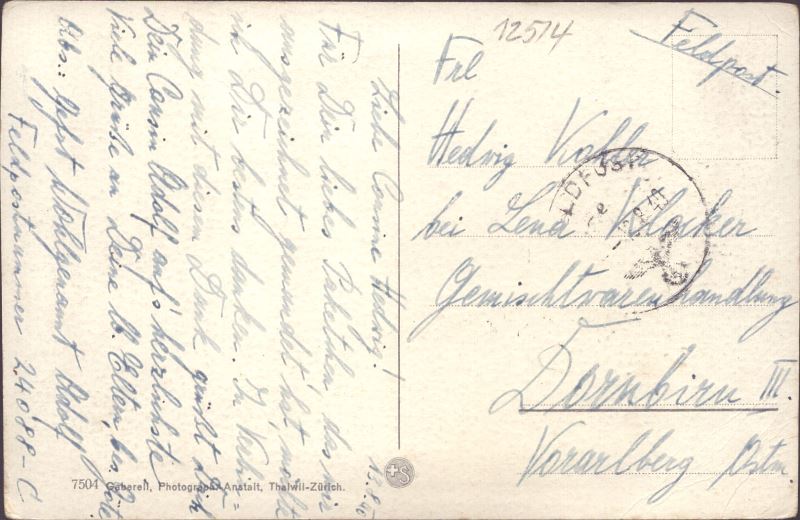 12514
Feldpost.
Frl
Hedwig Kohler
bei Lena Klocker
Gemischtwarenhandlung
Dornbirn III.
Vorarlberg Ostm
LDPOST
2.8.40
13.8.40
Liebe Cousine Hedwig!
Für Dein liebes Paketchen, das mir
ausgezeichnet gemundet hat, möchte
ich Dir bestens danken. In Verbin=
dung mit diesem Dank grüßt Dich
Dein Cousin Adolf auf's herzlichste
Viele Grüße an Deine lb. Eltern, bes. Gote
Abs.: Gefrt Wohlgenannt Adolf
Feldpostnummer 24088-C
7504 Gaberell, Photograph. Anstalt, Thalwil-Zürich.